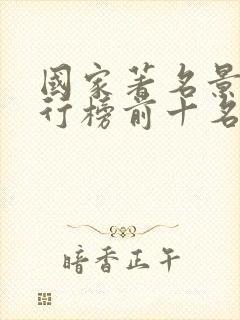 國家著名景
行榜前十名
暗香正午